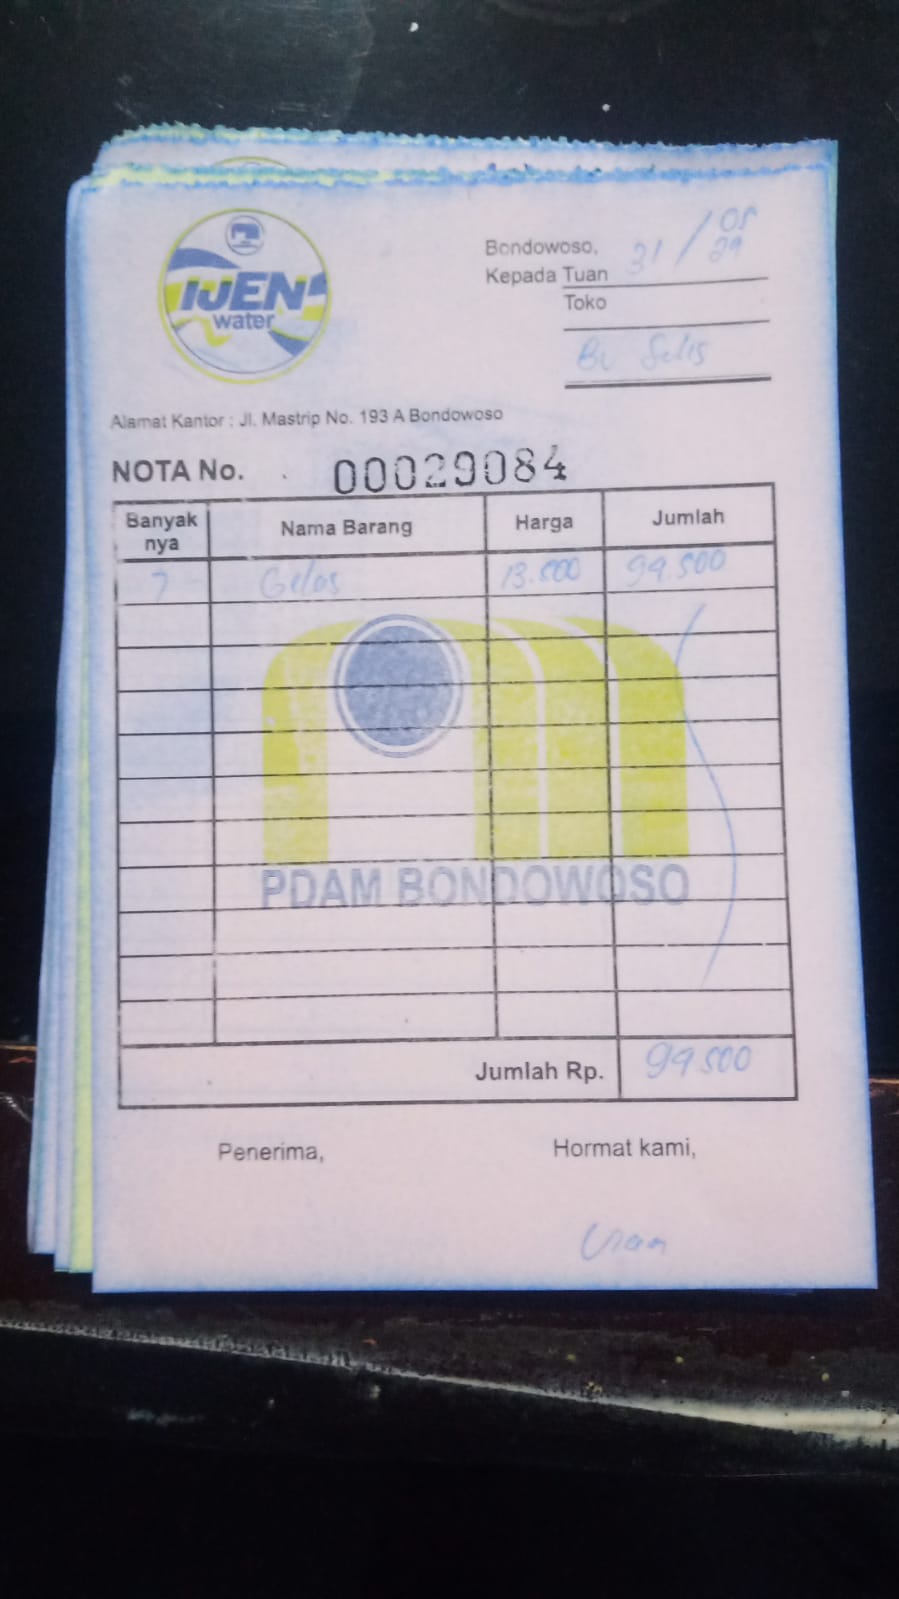 IJEN
water
Bondowoso, 31 / 05
Kepada Tuan
Toko
Alamat Kantor : Jl. Mastrip No. 193 A Bondowoso
NOTA No. 00029084
Banyak nya Nama Barang Harga Jumlah
7 Gelas 13.500 94.500
PDAM BONDOWOSO
Jumlah Rp. 94.500
Penerima, Hormat kami,